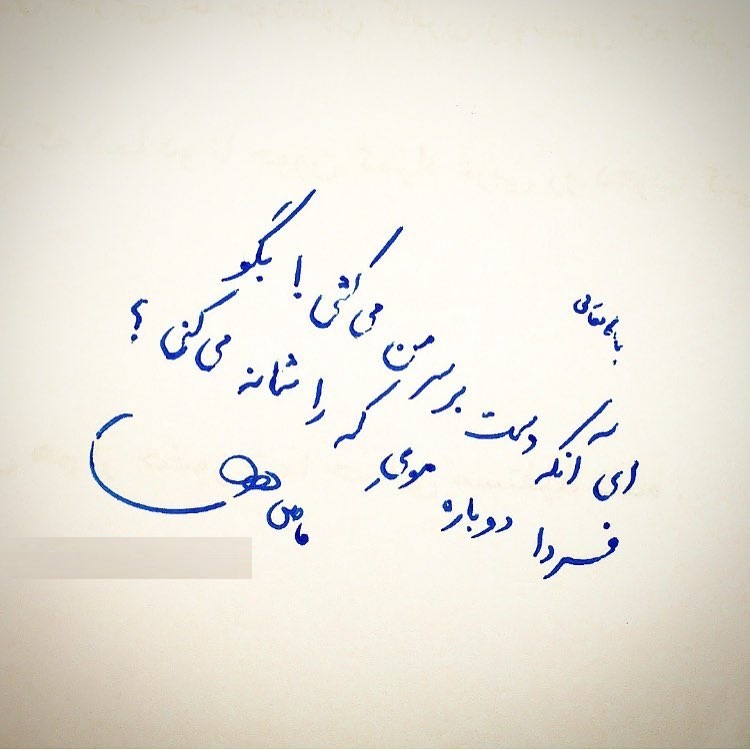 باسمه تعالی
ای آنکه دست بر سر من می‌کشی! بگو
فردا دوباره موی که را شانه می‌کنی؟
فاضل